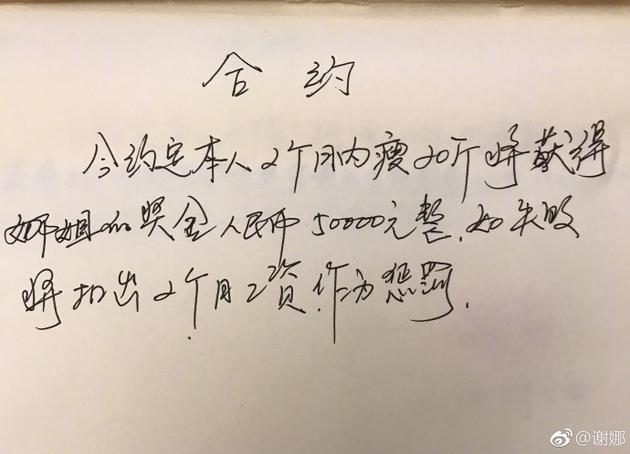 合约
今约定本人2个月内瘦20斤将获得
娜姐的奖金人民币50000元整.如失败
将扣出2个月工资.作为惩罚.
@谢娜